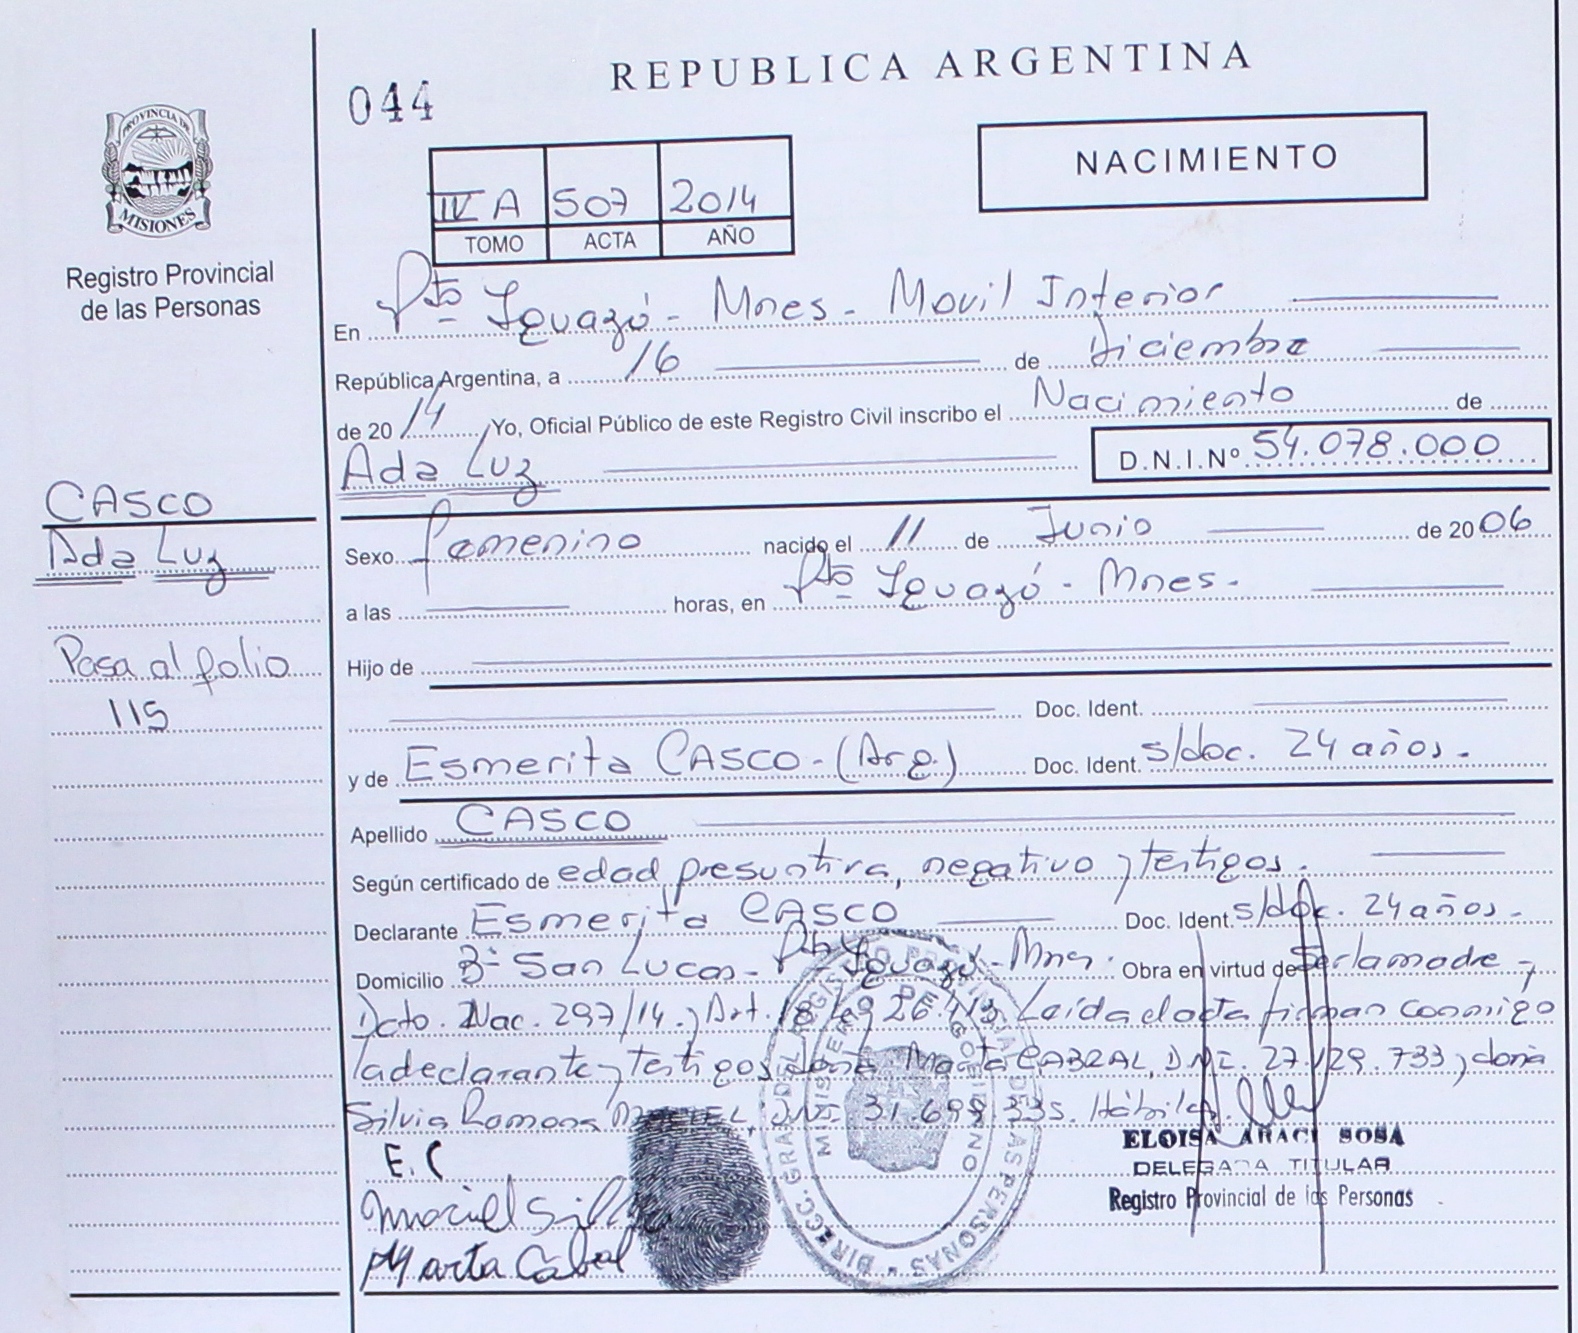 REPUBLICA ARGENTINA
044
PROVINCIA DE
MISIONES
Registro Provincial
de las Personas
NACIMIENTO
IV A 507 2014
TOMO ACTA AÑO
En Pto Iguazú - Mnes - Movil Interior
República Argentina, a 16 de Diciembre
de 2014 Yo, Oficial Público de este Registro Civil inscribo el Nacimiento de
Ada Luz D.N.I.Nº 54.078.000
CASCO
Ada Luz
Sexo femenino nacido el 11 de Junio de 2006
a las horas, en Pto Iguazú - Mnes.
Pasa al folio
115
Hijo de
Doc. Ident.
y de Esmerita CASCO - (Arg.) Doc. Ident. s/doc. 24 años.
Apellido CASCO
Según certificado de edad presuntiva, negativo y testigos.
Declarante Esmerita CASCO Doc. Ident. s/doc. 24 años.
Domicilio Bº San Lucas - Pto Iguazú - Mnes. Obra en virtud de Ser la madre y
Dcto. Nac. 297/14. y Art. 18 ley 26.413 Leída el acta firman conmigo
la declarante y testigos doña Marta CABRAL, DNI. 27.129.733 y doña
Silvia Romona MACIEL, DNI. 31.698.335. Hábiles.
E.C
Maciel Silvia
Marta Cabral
ELOISA ARACI SOSA
DELEGADA TITULAR
Registro Provincial de las Personas
DIRECC. GRAL. DEL REGISTRO PROVINCIAL DE LAS PERSONAS
MINISTERIO DE GOBIERNO